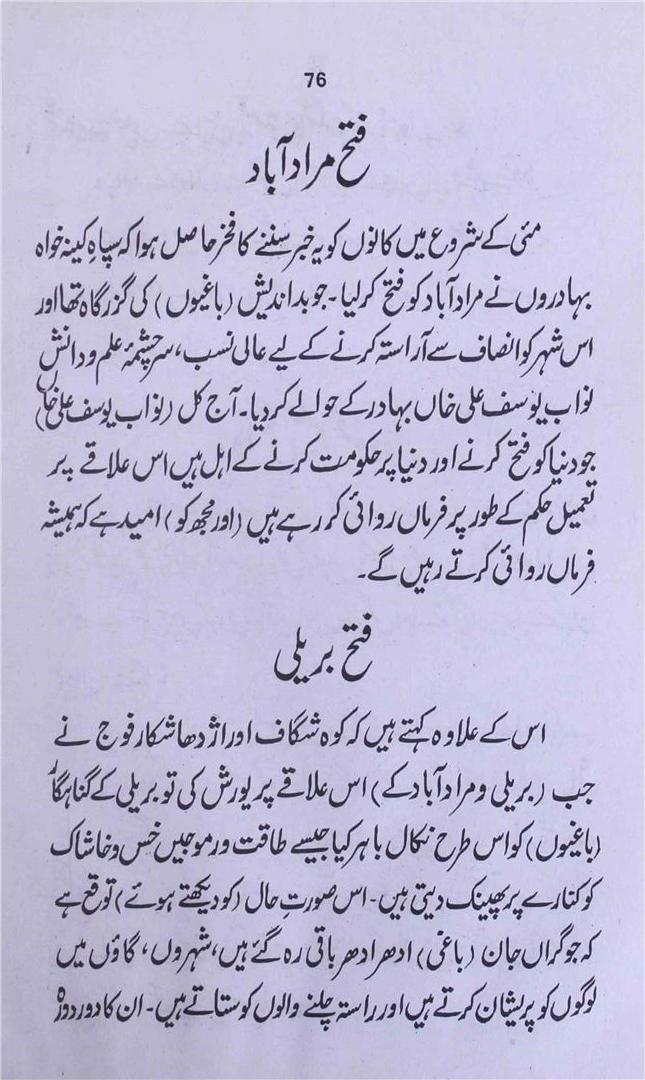 76
فتح مرادآباد
مئی کے شروع میں کانوں کو یہ خبر سننے کا فخر حاصل ہوا کہ سپاہِ کینہ خواہ
بہادروں نے مرادآباد کو فتح کر لیا۔ جو بداندیش (باغیوں) کی گزرگاہ تھا اور
اس شہر کو انصاف سے آراستہ کرنے کے لیے عالی نسب، سرچشمۂ علم و دانش
نواب یوسف علی خاں بہادر کے حوالے کر دیا۔ آج کل (نواب یوسف علی خاں)
جو دنیا کو فتح کرنے اور دنیا پر حکومت کرنے کے اہل ہیں اس علاقے پر
تعمیل حکم کے طور پر فرماں روائی کر رہے ہیں (اور مجھ کو) امید ہے کہ ہمیشہ
فرماں روائی کرتے رہیں گے۔
فتح بریلی
اس کے علاوہ کہتے ہیں کہ کوہ شگاف اور اژدھا شکار فوج نے
جب (بریلی و مرادآباد کے) اس علاقے پر یورش کی تو بریلی کے گناہگار
(باغیوں) کو اس طرح نکال باہر کیا جیسے طاقت ور موجیں خس و خاشاک
کو کنارے پر پھینک دیتی ہیں۔ اس صورتِ حال (کو دیکھتے ہوئے) توقع ہے
کہ جو گراں جان (باغی) ادھر ادھر باقی رہ گئے ہیں، شہروں، گاؤں میں
لوگوں کو پریشان کرتے ہیں اور راستہ چلنے والوں کو ستاتے ہیں۔ ان کا دور دورہ